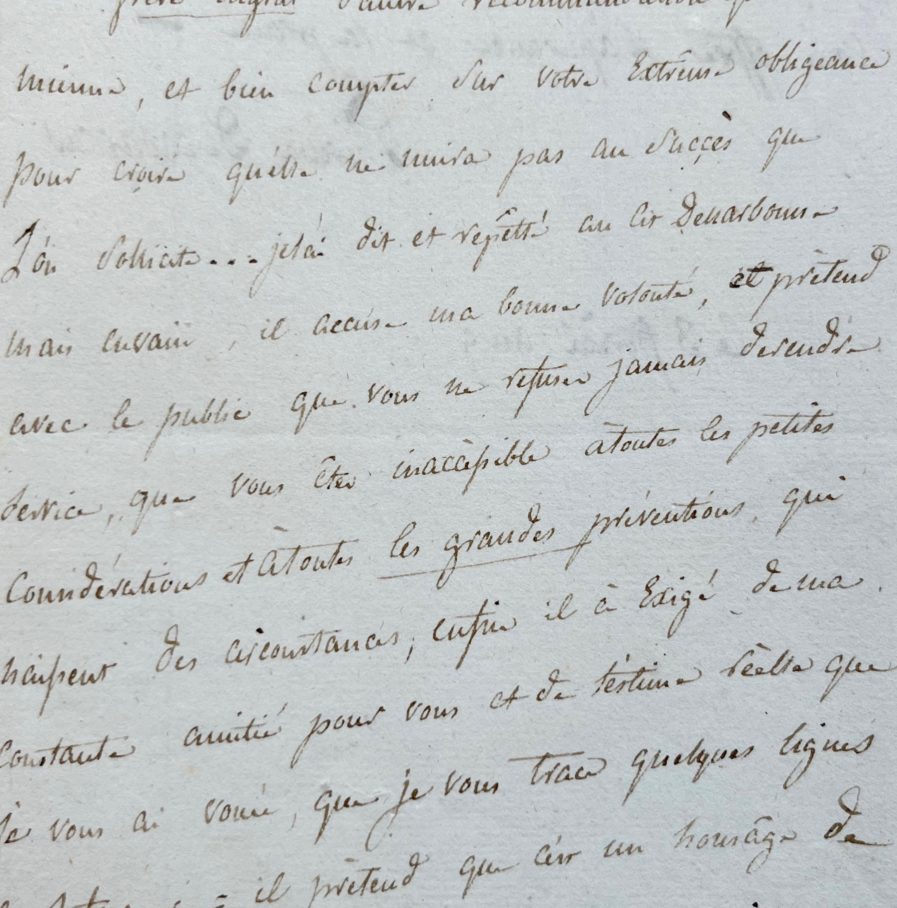 d'autre recommandation
mienne, et bien compter sur votre Extrême obligeance
pour croire qu'elle ne nuira pas au Succès que
L'on Sollicite... je l'ai dit et repêtté au Cit Denarbonne
mais envain, il accuse ma bonne volonté, et prètend
avec le public que vous ne refusez jamais derendre
Service, que vous êtes inaccèssible àtoutes les petites
Considérations et àtoutes les grandes préventions, qui
naissent des circonstances, enfin il à Exigé dema
Constante amitié pour vous et de l'éstime réelle que
Je vous ai vouée, que je vous trace quelques lignes
il prètend que c'ést un homâge de